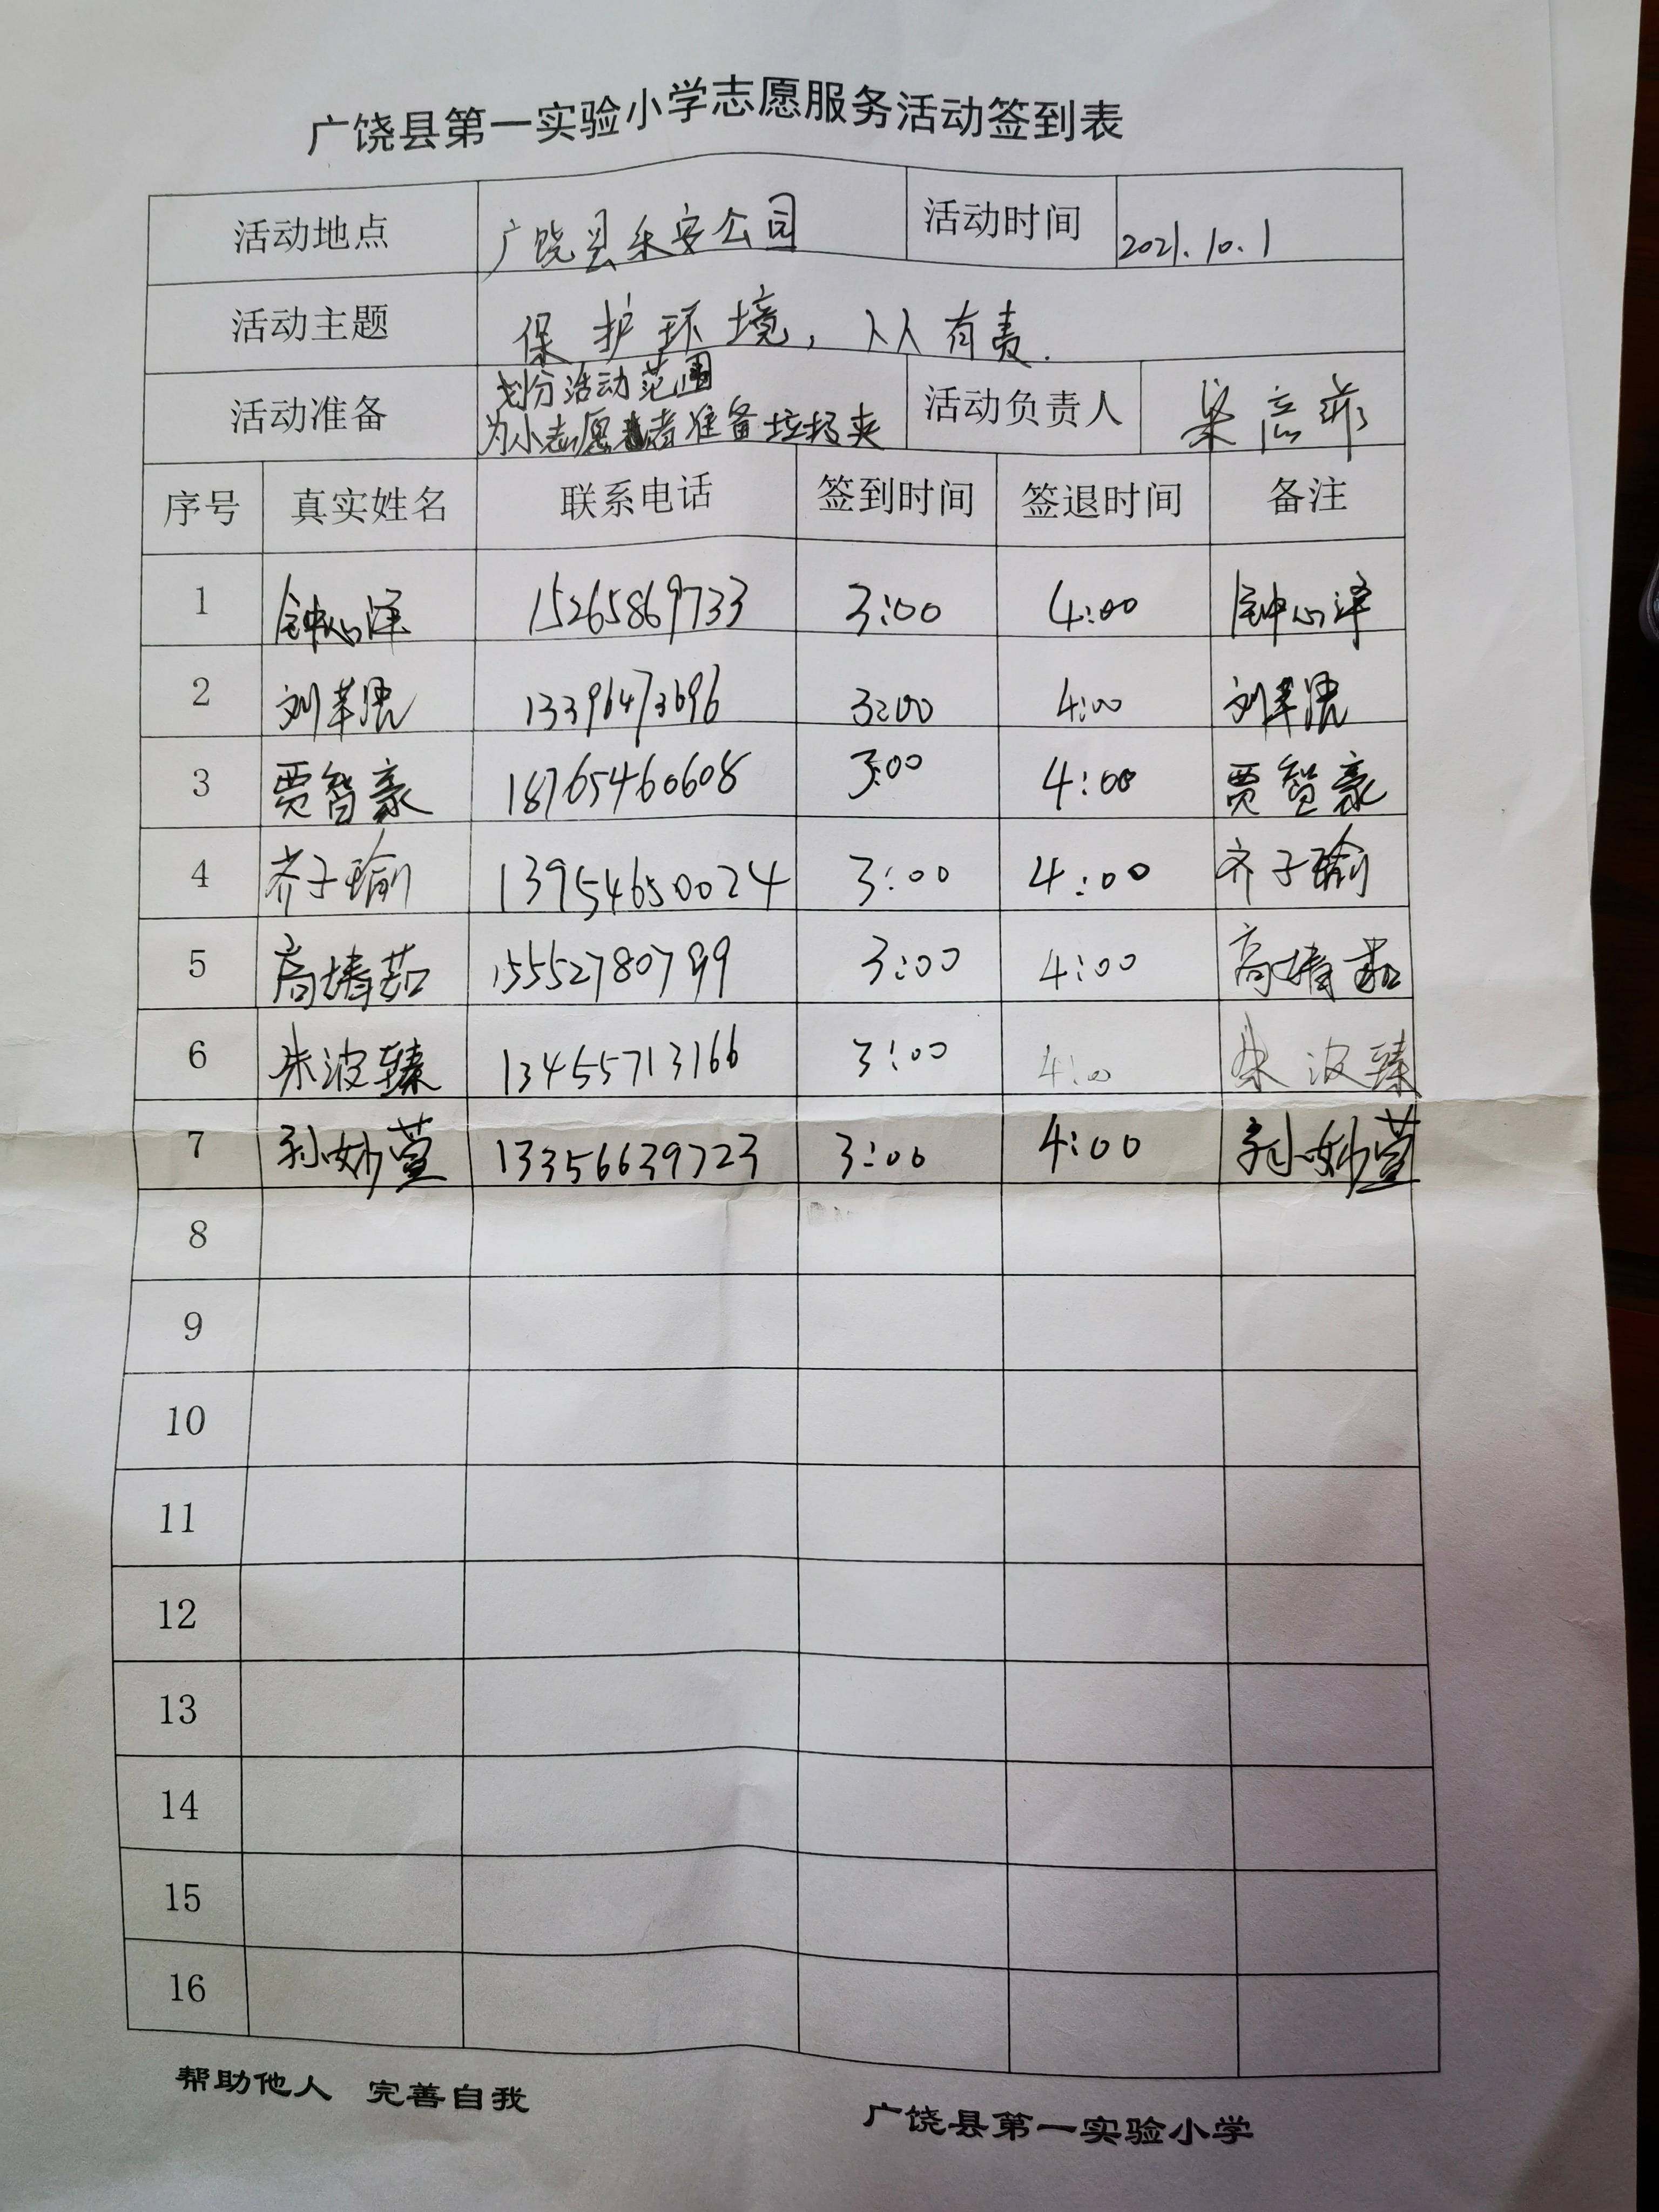 广饶县第一实验小学志愿服务活动签到表
活动地点 广饶县乐安公园 活动时间 2021.10.1
活动主题 保护环境，人人有责.
活动准备 划分活动范围
为小志愿者准备垃圾夹 活动负责人 梁
序号 真实姓名 联系电话 签到时间 签退时间 备注
1 钟心泽 15265869733 3:00 4:00 钟心泽
2 刘 13396473696 3:00 4:00 刘
3 贾智豪 18765460608 3:00 4:00 贾智豪
4 齐子瑜 13954650024 3:00 4:00 齐子瑜
5 高婧茹 15552780799 3:00 4:00 高婧茹
6 朱浚臻 13455713166 3:00 4:00 朱浚臻
7 孙妙萱 13356639723 3:00 4:00 孙妙萱
8
9
10
11
12
13
14
15
16
帮助他人 完善自我
广饶县第一实验小学